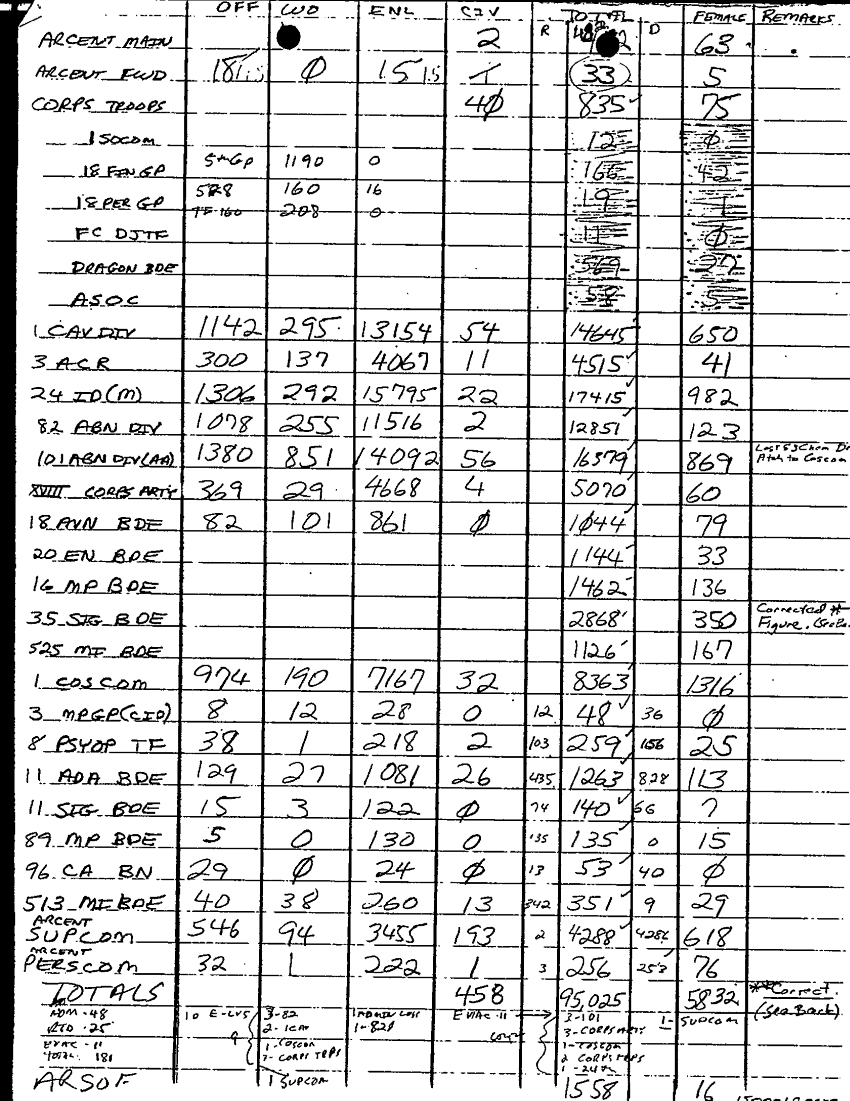 OFF CWO ENL CIV R TOTAL D FEMALE REMARKS
ARCENT MAIN 2 63
ARCENT FWD 1 33 5
CORPS TROOPS 4Ø 835 75
1 SOCOM 12 Ø
18 FIN GP 5th GP 1190 0 166 42
18 PER GP 528 160 16 19 1
TF 160 208 0
FC DJTF 11 Ø
DRAGON BDE 569 27
ASOC 58 5
1 CAV DIV 1142 295 13154 54 14645 650
3 ACR 300 137 4067 11 4515 41
24 ID(M) 1306 292 15795 22 17415 982
82 ABN DIV 1078 255 11516 2 12851 123
101 ABN DIV(AA) 1380 851 14092 56 16379 869 Lost 53 Chem
Atch to Coscom
XVIII CORPS ARTY 369 29 4668 4 5070 60
18 AVN BDE 82 101 861 Ø 1Ø44 79
20 EN BDE 1144 33
16 MP BDE 1462 136
35 SIG BDE 2868 350 Corrected *
Figure.
525 MI BDE 1126 167
1 COSCOM 974 190 7167 32 8363 1316
3 MPGP(CID) 8 12 28 0 12 48 36 Ø
8 PSYOP TF 38 1 218 2 103 259 156 25
11 ADA BDE 129 27 1081 26 435 1263 828 113
11 SIG BDE 15 3 122 Ø 74 140 66 7
89 MP BDE 5 0 130 0 135 135 0 15
96 CA BN 29 Ø 24 Ø 13 53 40 Ø
513 MI BDE 40 38 260 13 342 351 9 29
ARCENT
SUPCOM 546 94 3455 193 2 4288 4286 618
ARCENT
PERSCOM 32 1 222 1 3 256 253 76
TOTALS 458 95,025 5832 **Correct.
(See Back)
ADM-48 10 E-LVS 3-82 EVAC-11 3-101 1- SUPCOM
RTD-25 9 2-1CAV 1-82 3-CORPS ARTY
EVAC-11 1-COSCOM 1-COSCOM
TOTAL 181 CORPS TRPS 2 CORPS TRPS
1 SUPCOM 1-24
ARSOF 1558 16